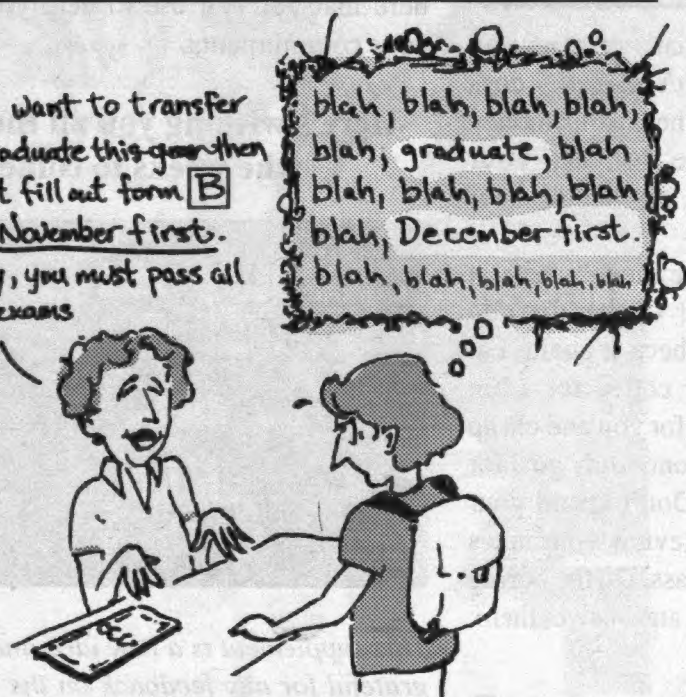 want to transfer
aduate this year then
t fill out form B
November first.
y, you must pass all
exams
blah, blah, blah, blah,
blah, graduate, blah
blah, blah, blah, blah
blah, December first.
blah, blah, blah, blah, blah